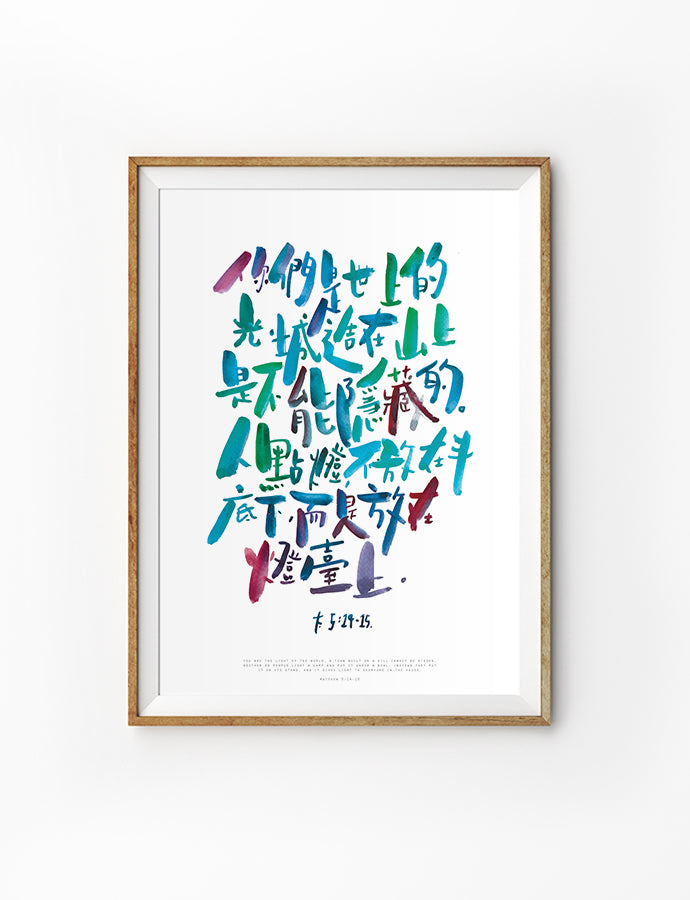 你們是世上的
光.城造在山上
是不能隱藏的.
人點燈,不放在斗
底下.而是放在
燈臺上.
太 5:14-15.
YOU ARE THE LIGHT OF THE WORLD. A TOWN BUILT ON A HILL CANNOT BE HIDDEN.
NEITHER DO PEOPLE LIGHT A LAMP AND PUT IT UNDER A BOWL. INSTEAD THEY PUT
IT ON ITS STAND, AND IT GIVES LIGHT TO EVERYONE IN THE HOUSE.
MATTHEW 5:14-15